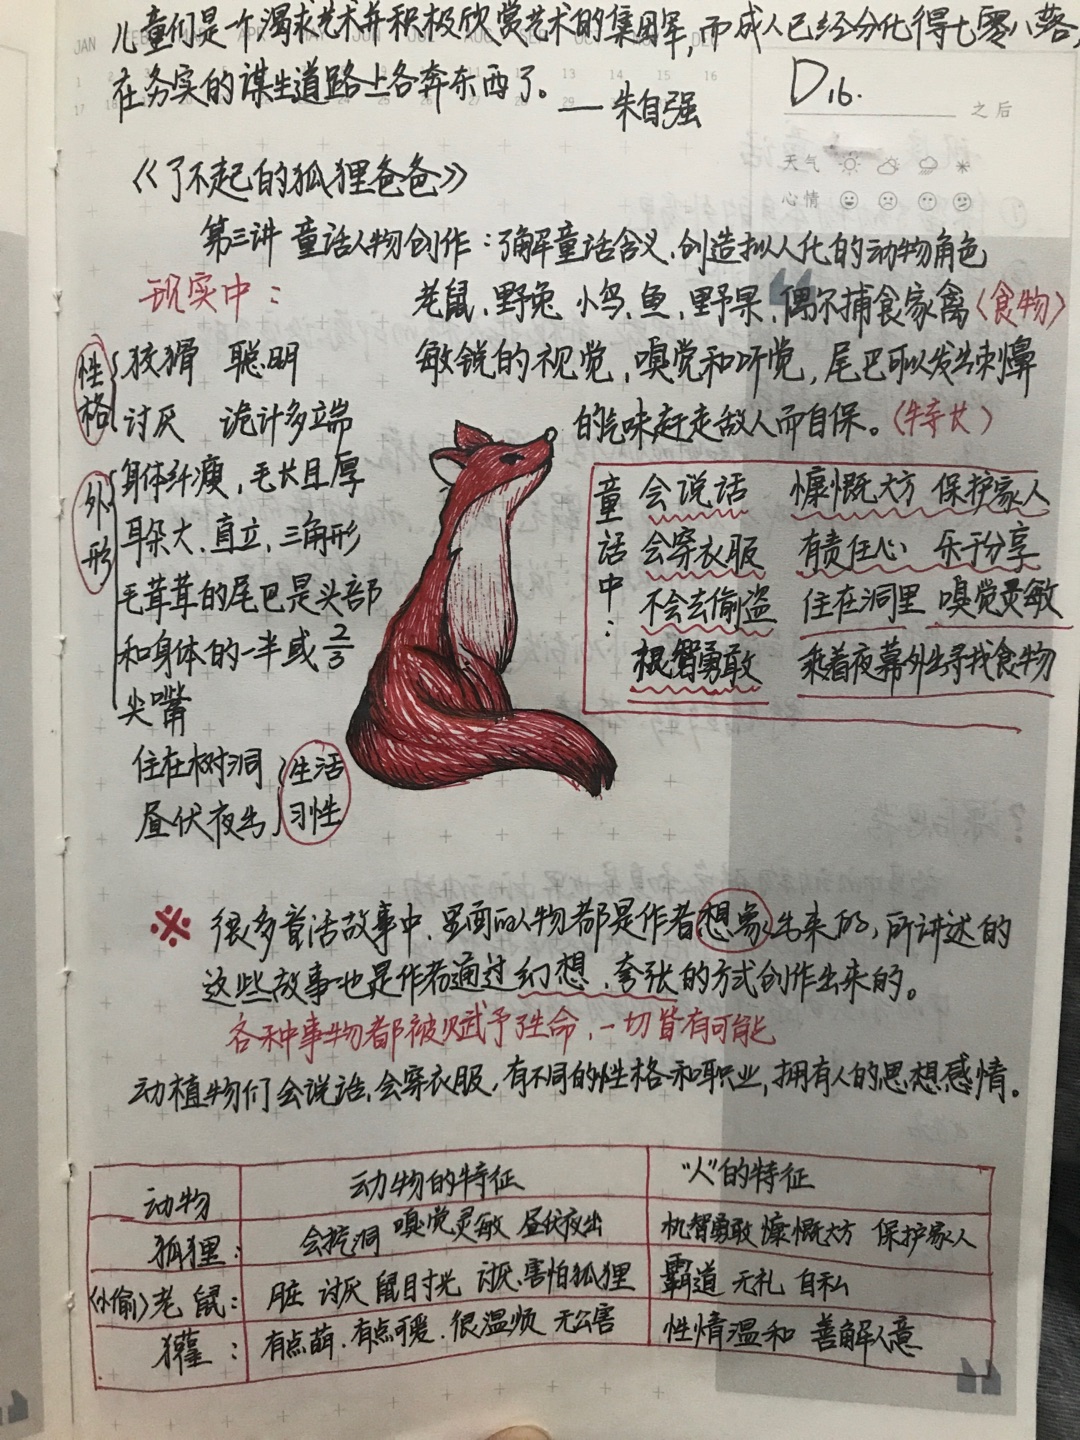 儿童们是一个渴求艺术并积极欣赏艺术的集团军，而成人已经分化得七零八落，
在务实的谋生道路上各奔东西了。——朱自强
D16.
之后
天气
心情
《了不起的狐狸爸爸》
第三讲 童话人物创作：了解童话含义、创造拟人化的动物角色
现实中：
老鼠、野兔 小鸟、鱼、野果、偶尔捕食家禽（食物）
性格
狡猾 聪明
敏锐的视觉，嗅觉和听觉，尾巴可以发出刺鼻
讨厌 诡计多端
的气味赶走敌人而自保。（特长）
外形
身体纤瘦，毛长且厚
耳朵大、直立、三角形
毛茸茸的尾巴是头部
和身体的一半或2/3
尖嘴
住在树洞
昼伏夜出
生活
习性
童话中：
会说话 慷慨大方 保护家人
会穿衣服 有责任心 乐于分享
不会去偷盗 住在洞里 嗅觉灵敏
机智勇敢 乘着夜幕外出寻找食物
※ 很多童话故事中、里面的人物都是作者想象出来的，所讲述的
这些故事也是作者通过幻想、夸张的方式创作出来的。
各种事物都被赋予了生命，一切皆有可能
动植物们会说话，会穿衣服，有不同的性格和职业，拥有人的思想感情。
动物 动物的特征 “人”的特征
狐狸： 会挖洞 嗅觉灵敏 昼伏夜出 机智勇敢 慷慨大方 保护家人
（小偷）老鼠： 脏 讨厌 鼠目寸光 讨厌、害怕狐狸 霸道 无礼 自私
獾： 有点萌、有点可爱、很温顺 无公害 性情温和 善解人意